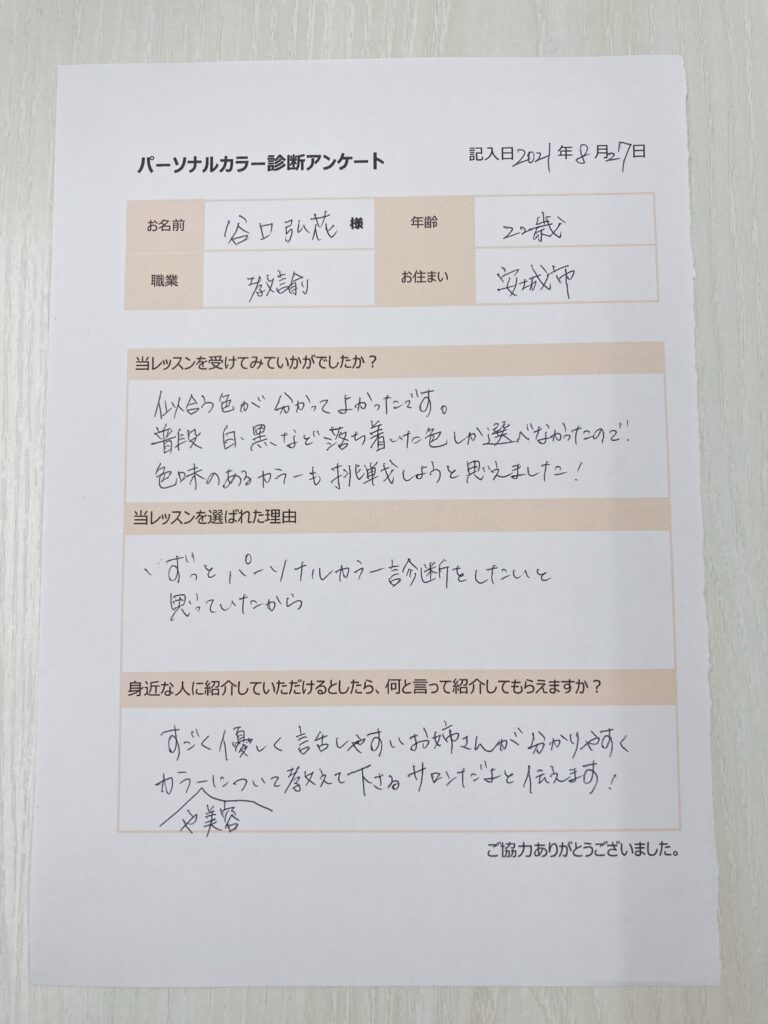 パーソナルカラー診断アンケート
記入日2021年8月27日
お名前 谷口弘花 様 年齢 22歳
職業 教諭 お住まい 安城市
当レッスンを受けてみていかがでしたか？
似合う色が分かってよかったです。
普段 白、黒、など落ち着いた色しか選べなかったので、
色味のあるカラーも挑戦しようと思えました！
当レッスンを選ばれた理由
ずっとパーソナルカラー診断をしたいと
思っていたから
身近な人に紹介していただけるとしたら、何と言って紹介してもらえますか？
すごく優しく話しやすいお姉さんが分かりやすく
カラーについて教えて下さるサロンだよと伝えます！
や美容
ご協力ありがとうございました。